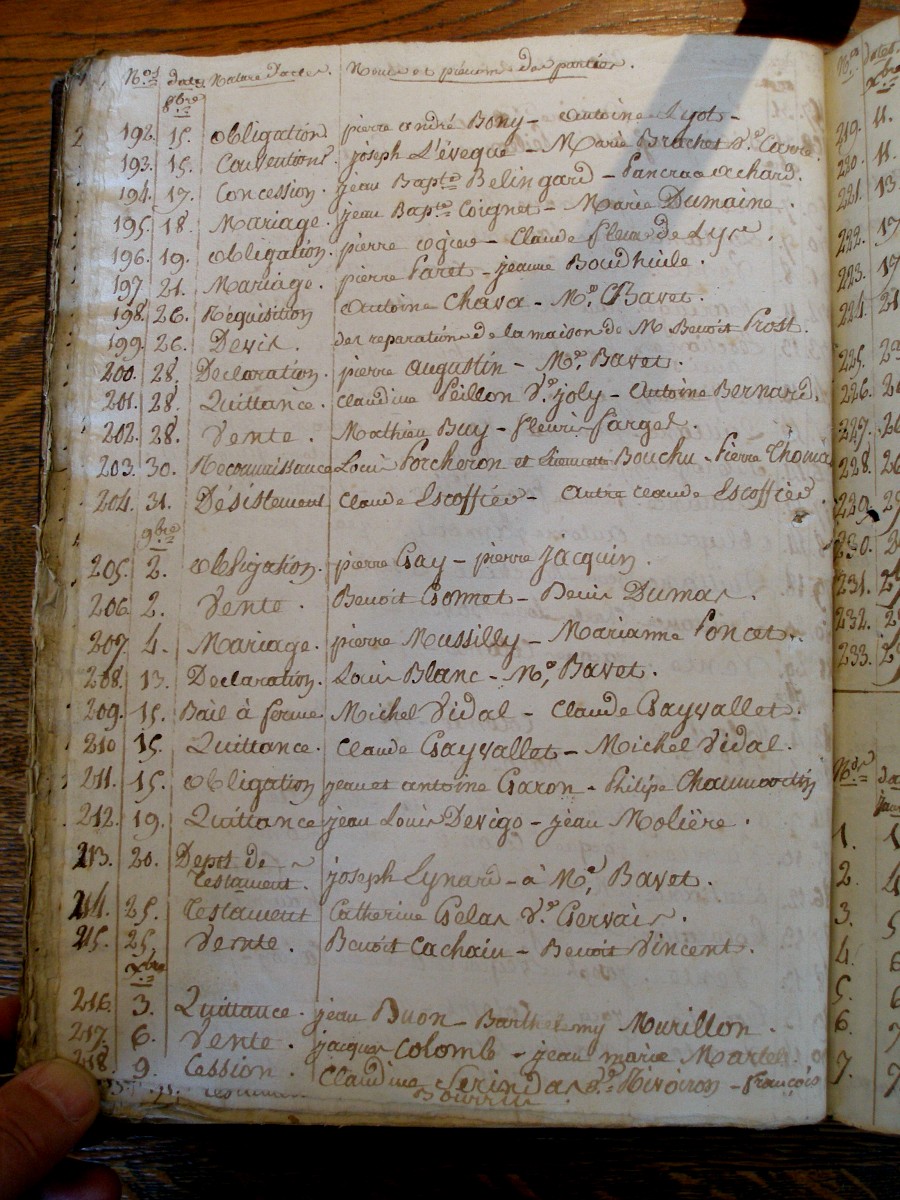 Nos dates Nature D'actes. Noms et prénoms des parties.
8bre
192. 15. obligation pierre andré Bony - antoine
193. 15. Conventions joseph L'éveque - Marie Brachet Ve
194. 17. Concession. jean Bapte Belingard - Pancrace achard.
195. 18. Mariage. jean Bapte Coignet - Marie Dumaine.
196. 19. obligation. pierre - Claude fleur de Lys.
197 21. Mariage. pierre Paret - jeanne
198. 26. Réquisition antoine Chava - Me Bavet.
199. 26. Devis. des reparations de la maison de Mr Benoit Prost.
200. 28. Declaration. pierre augustin - Me Bavet.
201. 28. Quittance. Claudine Peillon Ve joly - Antoine Bernard.
202. 28. Vente. Mathieu Buy - fleurie
203. 30. Reconnaissance Louis Porcheron et Bouchu - Pierre
204. 31. Désistement Claude Escoffier - autre Claude Escoffier.
9bre
205. 2. obligation. pierre Gay - pierre jacquin.
206. 2. Vente. Benoit Gonnet - Denis Dumas.
207. 4. Mariage. pierre Mussilly - Marianne Poncet.
208. 13. Declaration. Louis Blanc - Me Bavet.
209. 15. Bail à ferme. Michel Vidal - Claude Gayvallet.
210 15. Quittance. Claude Gayvallet - Michel Vidal.
211. 15. obligation jean et antoine Garon - Philipe
212. 19. Quittance jean Louis Devigo - jean Molière.
213. 20. Depot de
testament. joseph Lynard - à Me Bavet.
214. 25. Testament Catherine Gelas Ve Gervais.
215. 25. Vente. Benoit Cachain - Benoit Vincent.
xbre
216. 3. Quittance. jean Buon - Barthelemy Murillon.
217. 6. Vente. jacques Colomb - jean marie Martel
218. 9. Cession. Claudine Ve - françois
219. 11.
220. 11.
221. 13
222. 17
223. 17
224. 21
225.
226.
227.
228.
229.
230.
231.
232.
233.
1.
2.
3.
4.
5.
6.
7.